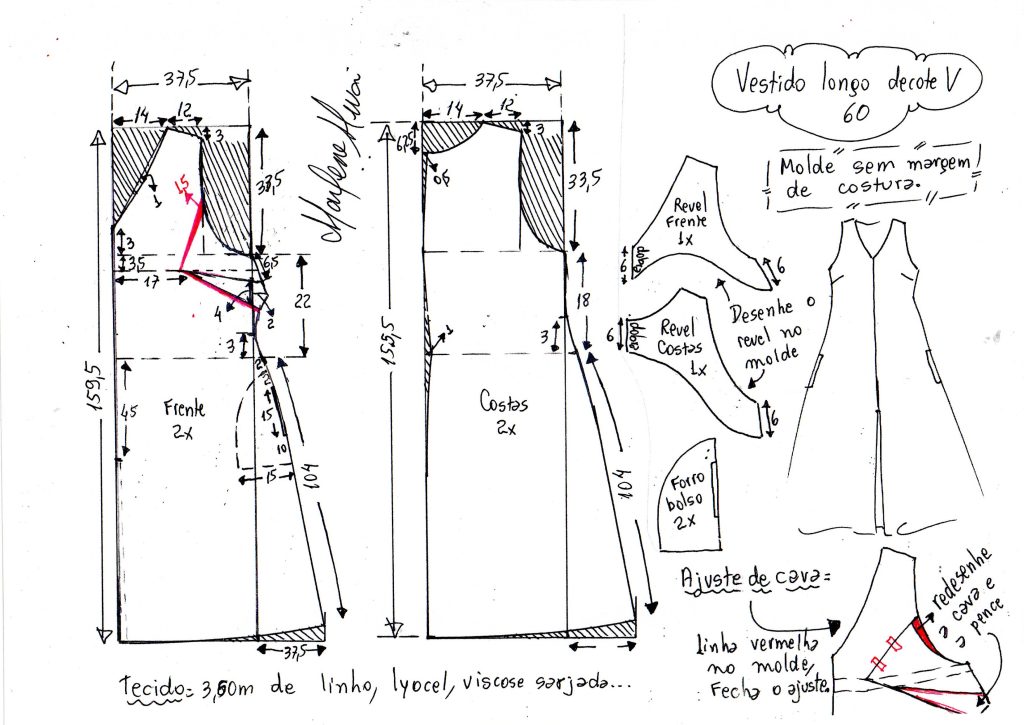 Vestido longo decote V
60
Molde sem margem
de costura.
37,5
14
12
3
1
15
38,5
3
3,5
17
6,5
4
2
22
3
159,5
45
Frente
2x
15
10
15
104
37,5
Marlene Mukai
37,5
14
12
6,5
3
0,5
33,5
18
1
3
155,5
Costas
2x
104
Revel
Frente
1x
dobra
6
6
Revel
Costas
1x
dobra
6
6
Desenhe o
revel no
molde
Forro
bolso
2x
Ajuste de cava=
linha vermelha
no molde,
Fecha o ajuste.
redesenhe
a cava e
a pence
Tecido= 3,60m de linho, lyocel, viscose sarjada...